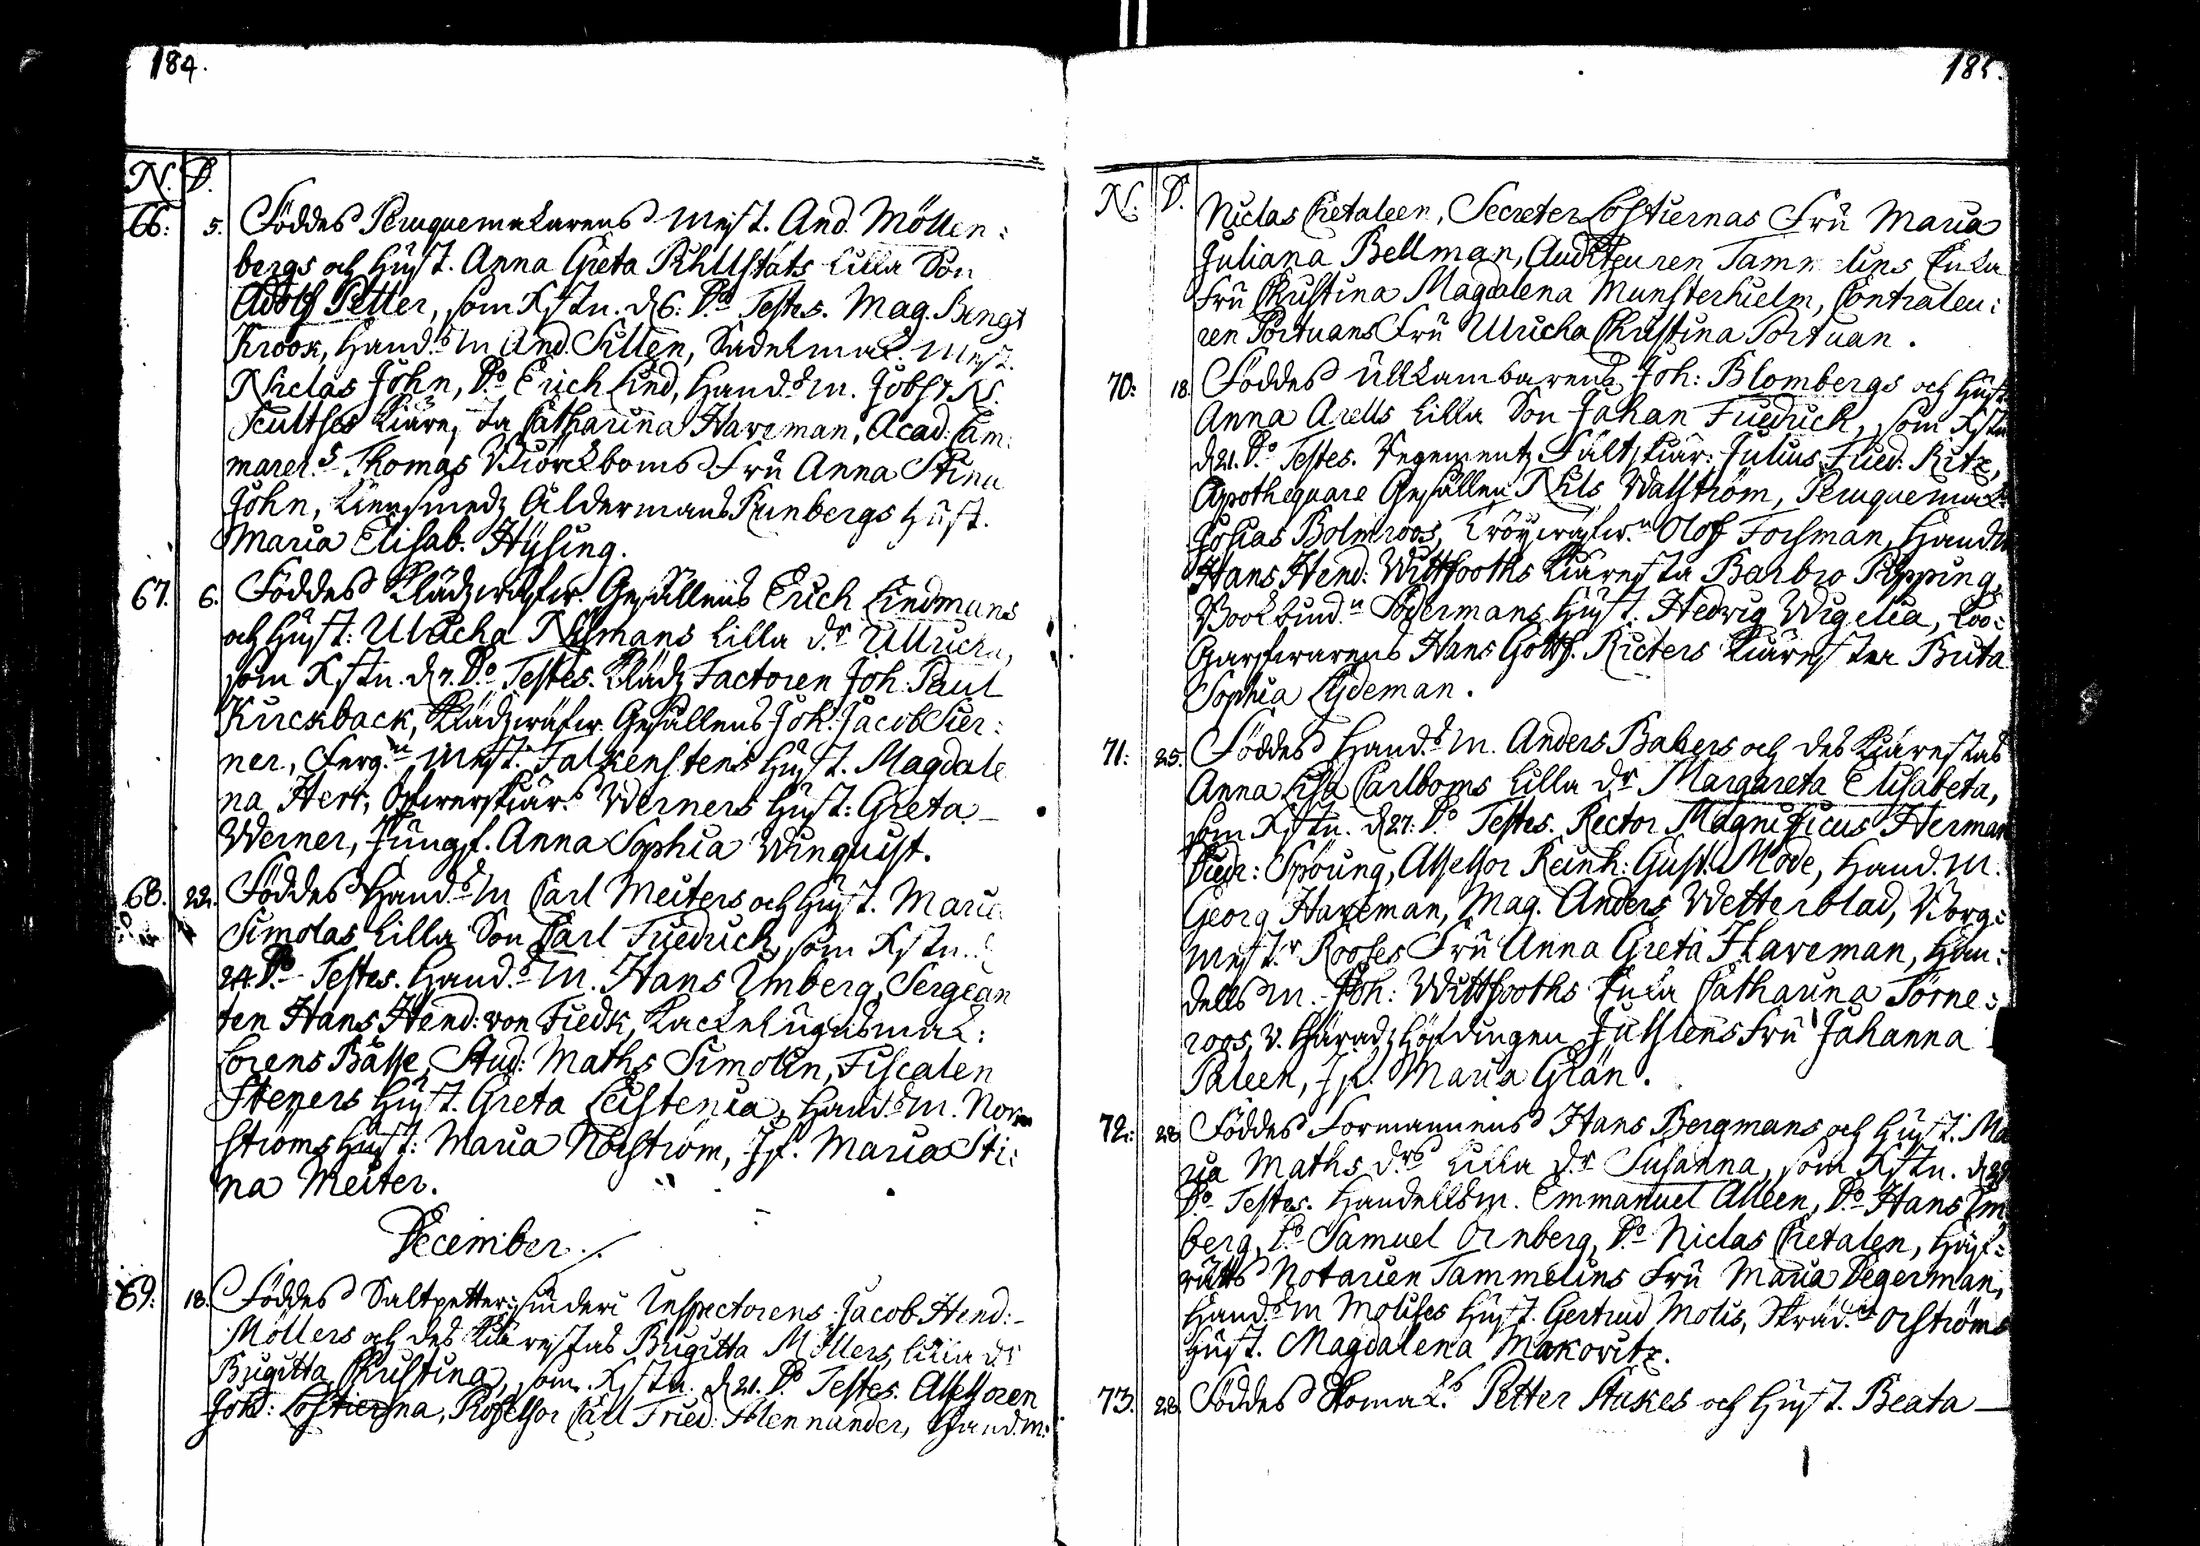 184.
N. D.
66: 5. Föddes Peruquemakarens Mest. And. Möllen:
bergs och Hust. Anna Greta Pihllstäts lilla Son
Adolf Petter, som Xstn. d. 6. Do Testes. Mag. Bengt
Krook, Hand.s M And. Sillen, Sadelmak. Mest.
Niclas John, Do Erich Lind, Hand.s M. Jobst N.
Scultses Käresta Catharina Hareman, Acad. Cam:
marer.s Thomas Biörckboms Fru Anna Stina
John, Kiensmedz Åldermans Runbergs Hust.
Maria Elisab. Hysing.
67. 6. Föddes Klädzwäfw. Gesällens Erich Lindmans
och Hust: Ulricha Nymans lilla dr Ullrica,
som Xstn. d. 7. Do Testes. Klädz Factoren Joh. Paul
Kirckback, Klädzwäfw. Gesällens Joh. Jacob
ner, Ferg.n Mest. Falkenstens Hust. Magdale
na Herr, Werners Hust: Greta
Werner, Jungf. Anna Sophia Winquist.
68. 22. Föddes Hand.s M Carl Meiters och Hust. Maria
Simolas lilla Son Carl Friedrich, som Xstn.
24. Do Testes. Hand.s M. Hans Imberg, Sergean
ten Hans Hend: von Fiedk, Kackelugnsmak:
Lorens Båsse, Stud: Maths Simolin, Fiscalen
Steners Hust. Greta Leistenia, Hand.s M. Nor
ströms Hust: Maria Norström, Jf. Maria Sti:
na Meiter.
December.
69: 18. Föddes Saltpetter siuderi Inspectorens Jacob Hend:
Möllers och des Kärestas Brigitta Möllers, lilla dr
Brigitta Christina, som Xstn. d. 21. Do Testes. Assessoren
Joh: Lostierna, Professor Carl Fried: Mennander, Hand. M:
185.
N. D.
Niclas Cretaleen, Secreter Lostiernas Fru Maria
Juliana Bellman, Auditeuren Tammelins Enka
Fru Christina Magdalena Munsterhielm, Contraleu:
ren Portuans Fru Ulricha Christina Portuan.
70: 18. Föddes Ullkambarens Joh: Blombergs och Hust.
Anna Arells lilla Son Johan Friedrich, som Xstn
d. 21. Do Testes. Regementz Fältskiär: Julius Fried. Ritz,
Apothequare Gesällen Nils Walström, Peruquemak.
Josias Bolmroos, Olof Forsman, Hand. M
Hans Hend: Wittfooths Käresta Barbro Pipping,
Bookbind.n Södermans Hust. Hedvig Wigelia, Loo:
Garfwarens Hans Gottf. Ricters Kärestea Brita
Sophia Lydeman.
71: 25. Föddes Hand.s M. Anders Babers och des Kärestas
Anna Lisa Carlboms lilla dr Margareta Elisabeta,
som Xstn. d. 27. Do Testes. Rector Magnificus Herman
Diedr: Spöring, Assessor Reinh: Gust: Mode, Hand. M.
Georg Hareman, Mag. Anders Wetterblad, Borg:
mest.r Rooses Fru Anna Greta Hareman, Han:
dells M. Joh: Wittfooths Enka Catharina Törne:
roos, V. Häradz Höfdingen Juslens Fru Johanna
Paleen, Jf. Maria Grän.
72: 28. Föddes Formannens Hans Bergmans och Hust. Ma
ria Maths drs lilla dr Susanna, som Xstn. d. 29
Do Testes. Handells M. Emmanuel Alleen, Do Hans Im
berg, Do Samuel Örnberg, Do Niclas Cretalen, Hof:
rätts Notarien Tammelins Fru Maria Degerman,
Hand.s M Molises Hust. Gertrud Molis, Skräd.n Orströms
Hust. Magdalena Makovitz.
73. 28. Föddes Skomak.s Petter Stakes och Hust. Beata